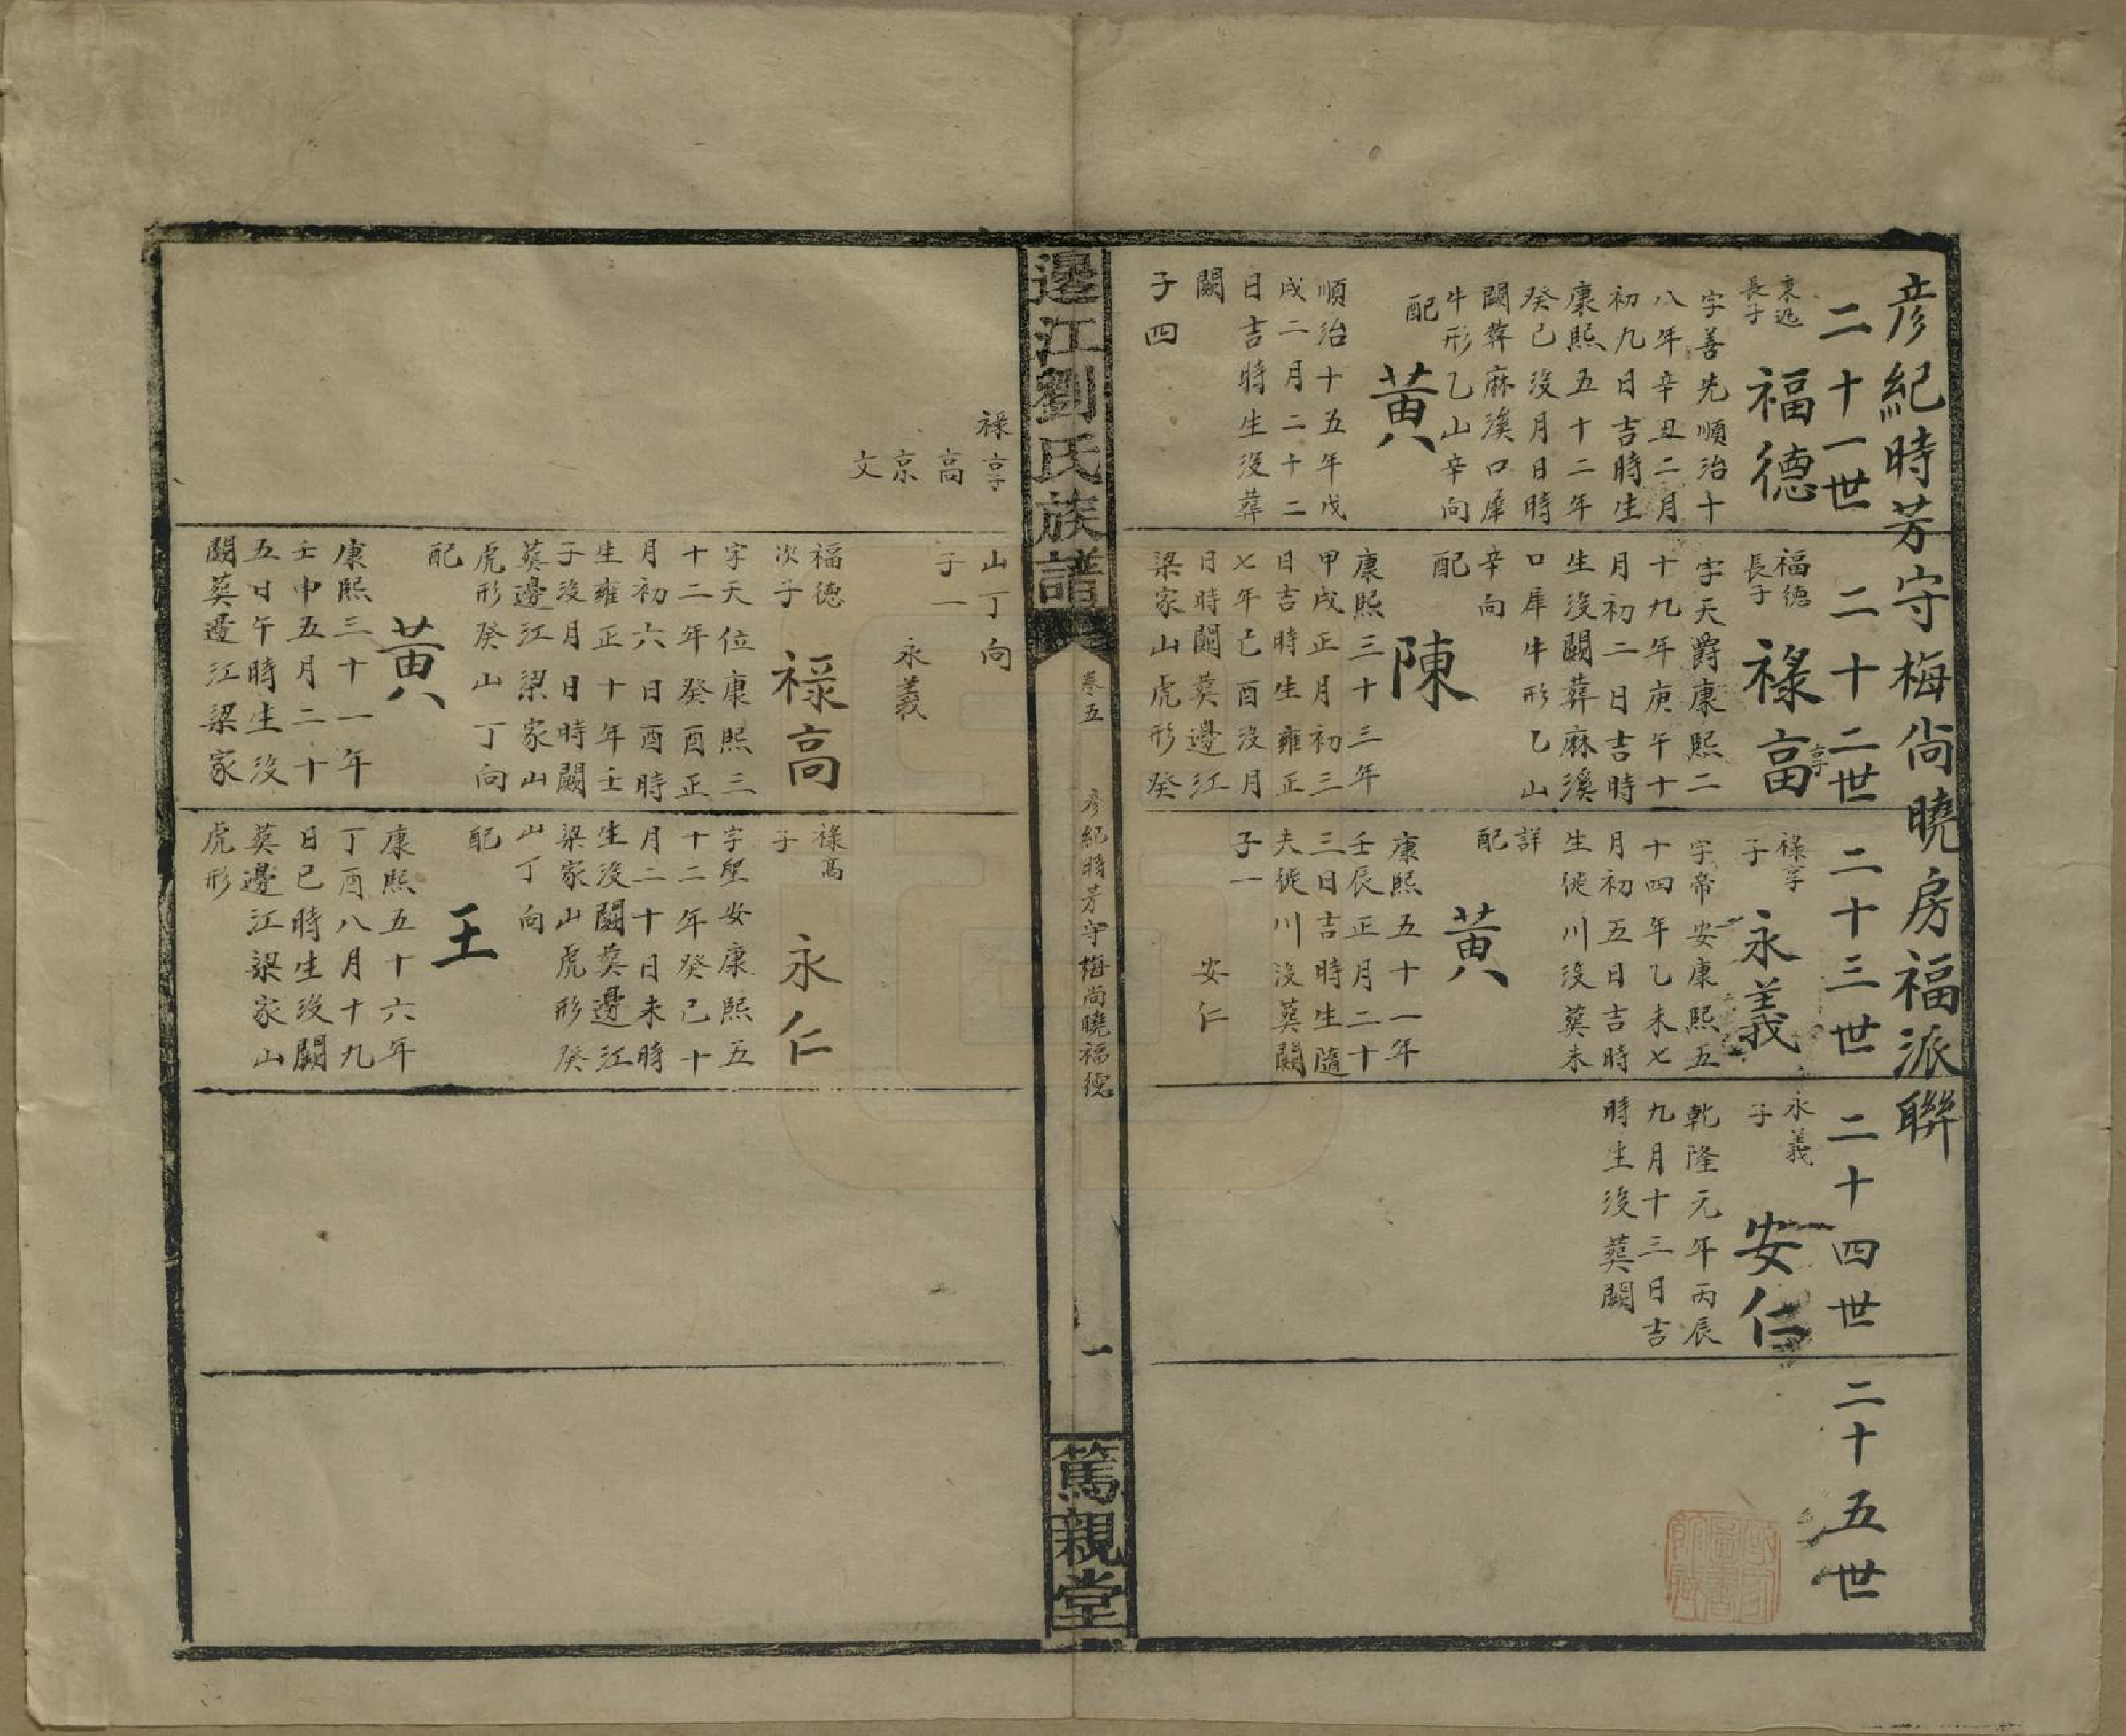 彥紀時芳守梅尚曉房福派聯
二十一世
二十二世
二十三世
二十四世
二十五世
長子
福德
字善先順治十
八年辛丑二月
初九日吉時生
康熙五十二年
癸巳沒月日時
闕葬麻溪口犀
牛形乙山辛向
配
黃
順治十五年戊
戌二月二十二
日吉時生沒葬
闕
子四
福德
長子
祿亯
享
字天爵康熙二
十九年庚午十
月初二日吉時
生沒闕葬麻溪
口犀牛形乙山
辛向
配
陳
康熙三十三年
甲戌正月初三
日吉時生雍正
七年己酉沒月
日時闕塟邊江
梁家山虎形癸
祿享
子
永義
字帝安康熙五
十四年乙未七
月初五日吉時
生徙川沒塟未
詳
配
黃
康熙五十一年
壬辰正月二十
三日吉時生隨
夫徙川沒塟闕
子一
安仁
永義
子
安仁
乾隆元年丙辰
九月十三日吉
時生沒塟闕
邊江劉氏族譜
卷五
彥紀時芳守梅尚曉福德
一
篤親堂
祿享
高
京
文
山丁向
子一
永義
福德
次子
祿高
字天位康熙三
十二年癸酉正
月初六日酉時
生雍正十年壬
子沒月日時闕
塟邊江梁家山
虎形癸山丁向
配
黃
康熙三十一年
壬申五月二十
五日午時生沒
闕塟邊江梁家
祿高
子
永仁
字聖安康熙五
十二年癸巳十
月二十日未時
生沒闕塟邊江
梁家山虎形癸
山丁向
配
王
康熙五十六年
丁酉八月十九
日巳時生沒闕
塟邊江梁家山
虎形